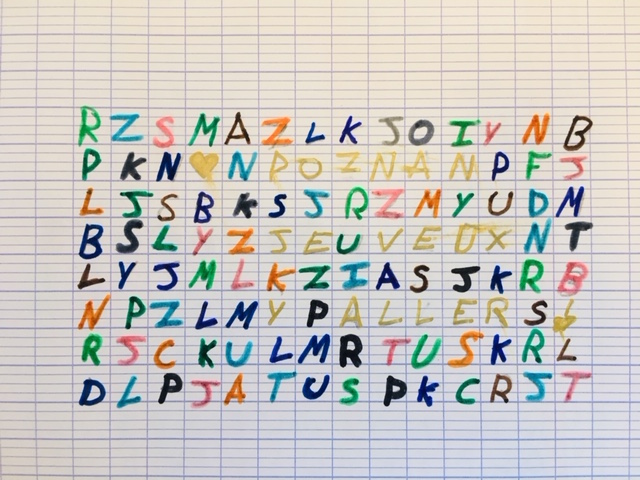 R Z S M A Z L K J O I Y N B
P K N 💛 N P O Z N A N P F J
L J S B K S J R Z M Y U D M
B S L Y Z J E U V E U X N T
L Y J M L K Z I A S J K R B
N P Z L M Y P A L L E R S L
R J C K U L M R T U S K R L
D L P J A T U S P K C R J T